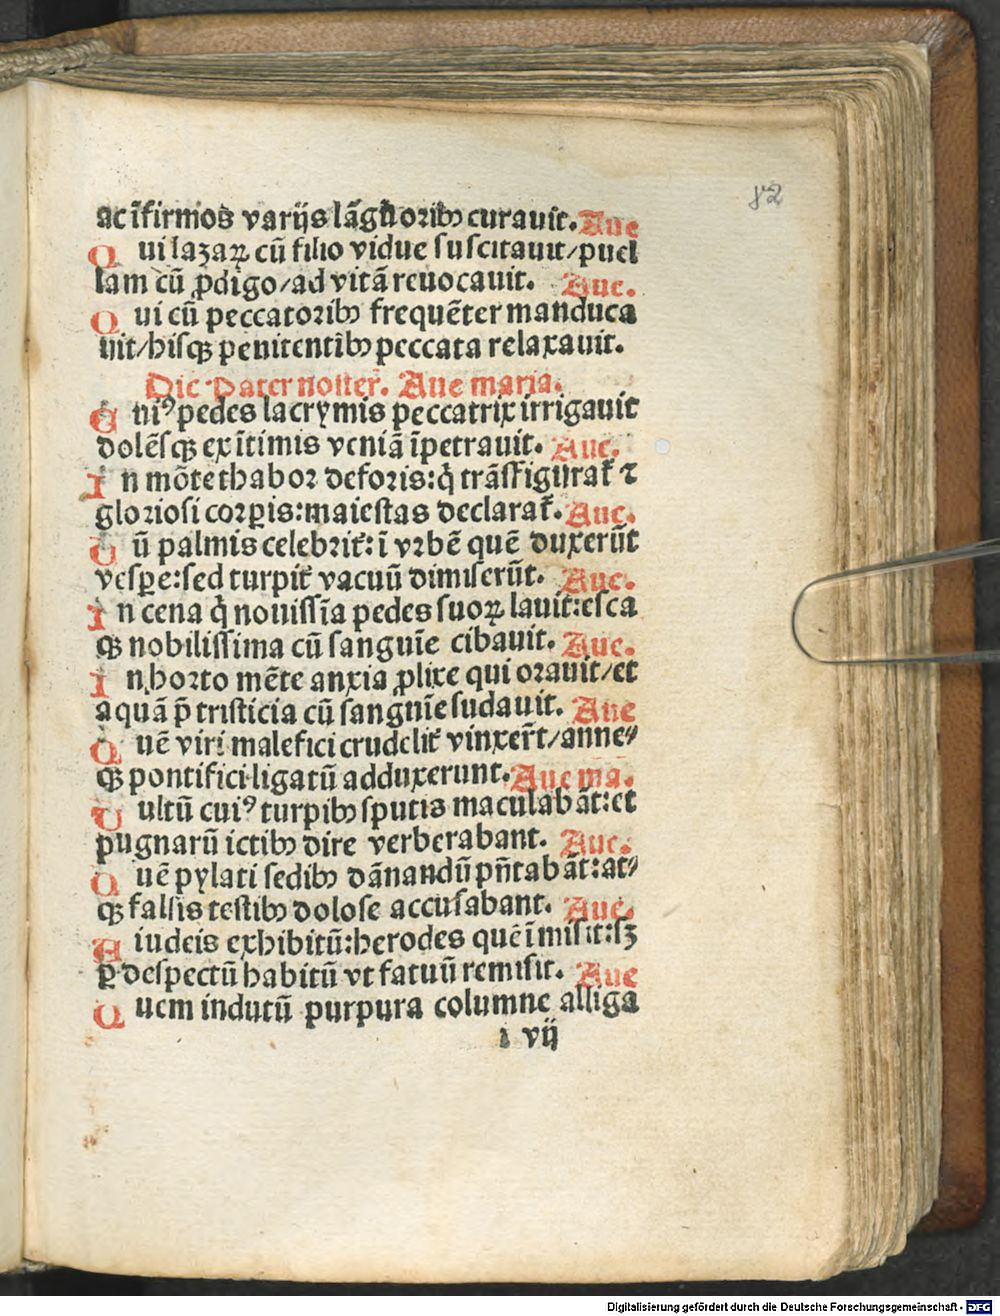 82
ac ĩfirmos varijs lãgũoribꝰ curauit. Aue
Qui lazaꝝ cũ filio vidue suscitauit/puel
lam cũ ꝓdigo/ad vitã reuocauit. Aue.
Qui cũ peccatoribꝰ frequẽter manduca
uit/hisqꝫ penitentibꝰ peccata relaxauit.
Dic Pater noster. Aue maria.
Cuiꝰ pedes lacrymis peccatrix irrigauit
dolẽsqꝫ ex ĩtimis veniã ĩpetrauit. Aue.
In mõte thabor deforis: q̃ trãsfigurat̃ ⁊
gloriosi corꝑis: maiestas declarat̃. Aue.
Cũ palmis celebrit̃: ĩ vrbẽ quẽ duxerũt
vesꝑe: sed turpit̃ vacuũ dimiserũt. Aue.
In cena q̃ nouissĩa pedes suoꝝ lauit: esca
qꝫ nobilissima cũ sanguĩe cibauit. Aue.
In horto mẽte anxia ꝓlixe qui orauit/et
aquã p̃ tristicia cũ sanguĩe sudauit. Aue
Quẽ viri malefici crudelit̃ vinxer̃t/anne⸗
qꝫ pontifici ligatũ adduxerunt. Aue ma.
Vultũ cuiꝰ turpibꝰ sputis maculabãt: et
pugnarũ ictibꝰ dire verberabant. Aue.
Quẽ pylati sedibꝰ dãnandũ pñtabãt: at⸗
qꝫ falsis testibꝰ dolose accusabant. Aue.
A iudeis exhibitũ: herodes quẽ ĩmisit: sꝫ
ꝑ despectũ habitũ vt fatuũ remisit. Aue
Quem indutũ purpura columne alliga
l vij
Digitalisierung gefördert durch die Deutsche Forschungsgemeinschaft - DFG